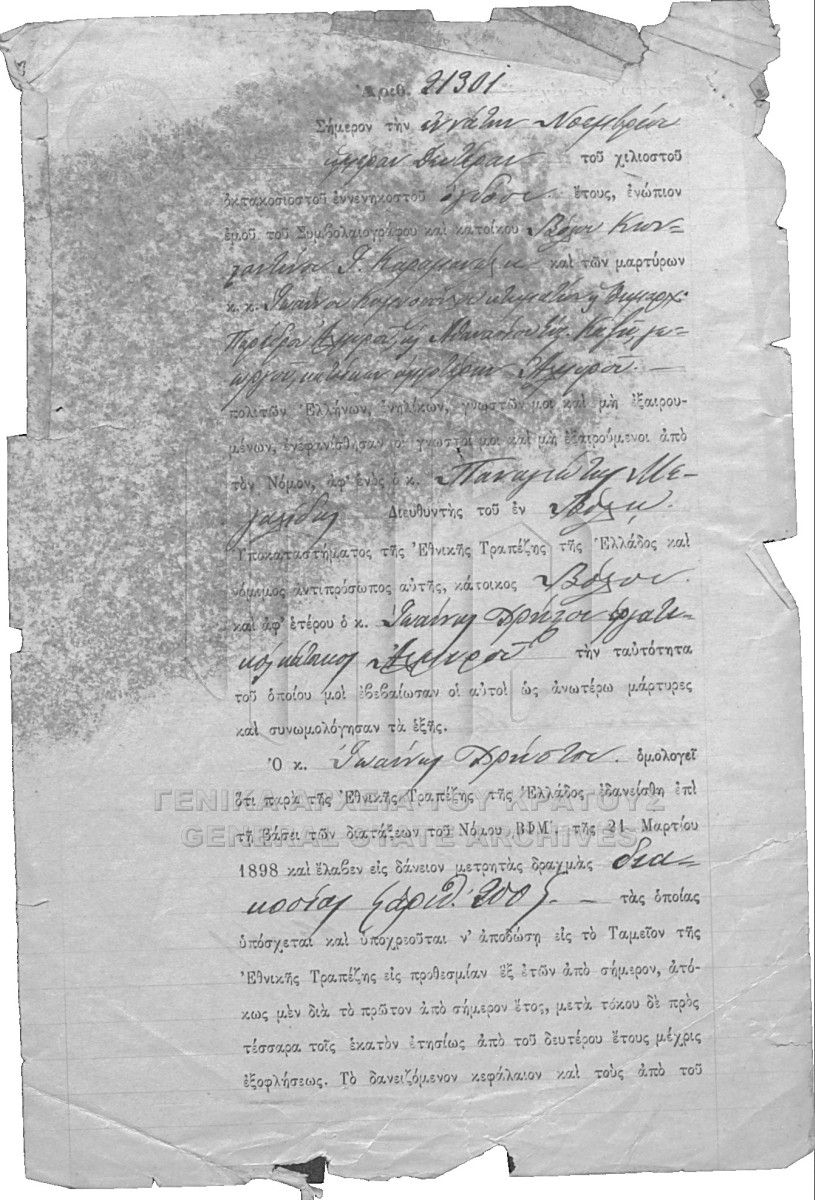 Ἀριθ. 21301
Σήμερον τὴν ἐνάτην Νοεμβρίου
ἡμέραν Δευτέραν τοῦ χιλιοστοῦ
ὀκτακοσιοστοῦ ἐννενηκοστοῦ ὀγδόου ἔτους, ἐνώπιον
ἐμοῦ τοῦ Συμβολαιογράφου καὶ κατοίκου Βόλου Κων-
σταντίνου καὶ τῶν μαρτύρων
κ. κ. Ἰωάννου
Ἀθανασίου
κατοίκων ἀμφοτέρων Ἁλμυροῦ. —
πολιτῶν Ἑλλήνων, ἐνηλίκων, γνωστῶν μοι καὶ μὴ ἐξαιρου-
μένων, ἐνεφανίσθησαν οἱ γνωστοί μοι καὶ μὴ ἐξαιρούμενοι ἀπὸ
τὸν Νόμον, ἀφ' ἑνὸς ὁ κ. Παναγιώτης
Διευθυντὴς τοῦ ἐν Βόλῳ
Ὑποκαταστήματος τῆς Ἐθνικῆς Τραπέζης τῆς Ἑλλάδος καὶ
νόμιμος ἀντιπρόσωπος αὐτῆς, κάτοικος Βόλου
καὶ ἀφ' ἑτέρου ὁ κ. Ἰωάννης Χρήστου
κάτοικος Ἁλμυροῦ τὴν ταὐτότητα
τοῦ ὁποίου μοὶ ἐβεβαίωσαν οἱ αὐτοὶ ὡς ἀνωτέρω μάρτυρες
καὶ συνωμολόγησαν τὰ ἑξῆς.
Ὁ κ. Ἰωάννης Χρήστου ὁμολογεῖ
ὅτι παρὰ τῆς Ἐθνικῆς Τραπέζης τῆς Ἑλλάδος ἐδανείσθη ἐπὶ
ΓΕΝΙΚΑ ΑΡΧΕΙΑ ΤΟΥ ΚΡΑΤΟΥΣ
τῇ βάσει τῶν διατάξεων τοῦ Νόμου ΒΦΜ΄. τῆς 21 Μαρτίου
GENERAL STATE ARCHIVES
1898 καὶ ἔλαβεν εἰς δάνειον μετρητὰς δραχμὰς δια-
κοσίας (ἀριθ. 200). — τὰς ὁποίας
ὑπόσχεται καὶ ὑποχρεοῦται ν' ἀποδώσῃ εἰς τὸ Ταμεῖον τῆς
Ἐθνικῆς Τραπέζης εἰς προθεσμίαν ἓξ ἐτῶν ἀπὸ σήμερον, ἀτό-
κως μὲν διὰ τὸ πρῶτον ἀπὸ σήμερον ἔτος, μετὰ τόκου δὲ πρὸς
τέσσαρα τοῖς ἑκατὸν ἐτησίως ἀπὸ τοῦ δευτέρου ἔτους μέχρις
ἐξοφλήσεως. Τὸ δανειζόμενον κεφάλαιον καὶ τοὺς ἀπὸ τοῦ